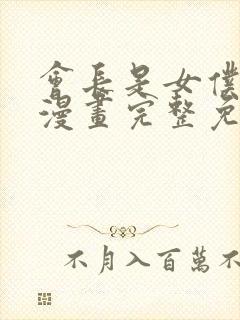 會長是女僕
漫畫完整免
不月入百萬不